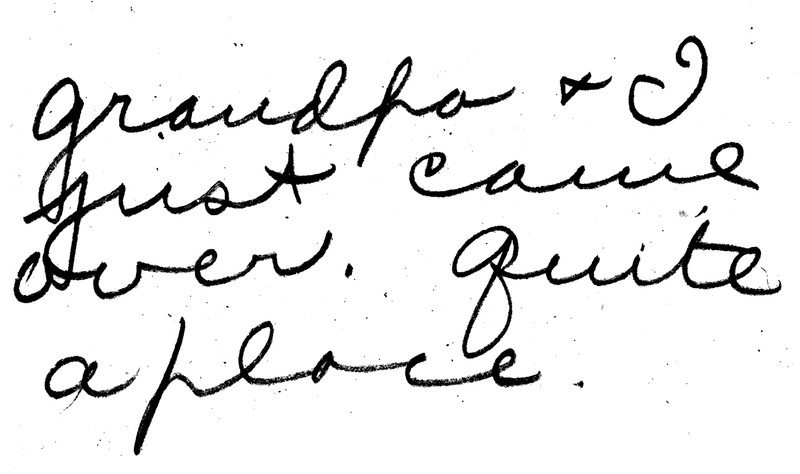 grandpa + I
just came
over. quite
a place.